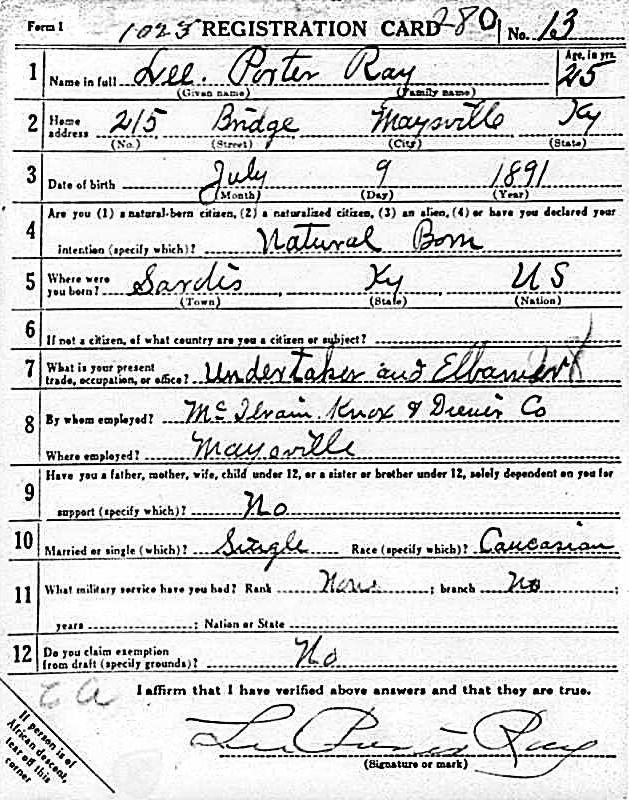 Form 1 1023 REGISTRATION CARD 280 No. 13
1 Name in full Lee. Porter Ray Age, in yrs. 25
(Given name) (Family name)
2 Home address 215 Bridge Maysville Ky
(No.) (Street) (City) (State)
3 Date of birth July 9 1891
(Month) (Day) (Year)
4 Are you (1) a natural-born citizen, (2) a naturalized citizen, (3) an alien, (4) or have you declared your
intention (specify which)? Natural Born
5 Where were you born? Sardis Ky US
(Town) (State) (Nation)
6 If not a citizen, of what country are you a citizen or subject?
7 What is your present trade, occupation, or office? Undertaker and
8 By whom employed? Mc Ilvain. Knox & Diener Co
Where employed? Maysville
9 Have you a father, mother, wife, child under 12, or a sister or brother under 12, solely dependent on you for
support (specify which)? No
10 Married or single (which)? Single Race (specify which)? Caucasian
11 What military service have you had? Rank None ; branch No ;
years ; Nation or State
12 Do you claim exemption
from draft (specify grounds)? No
I affirm that I have verified above answers and that they are true.
If person is of
African descent,
tear off this
corner
Lee Porter Ray
(Signature or mark)